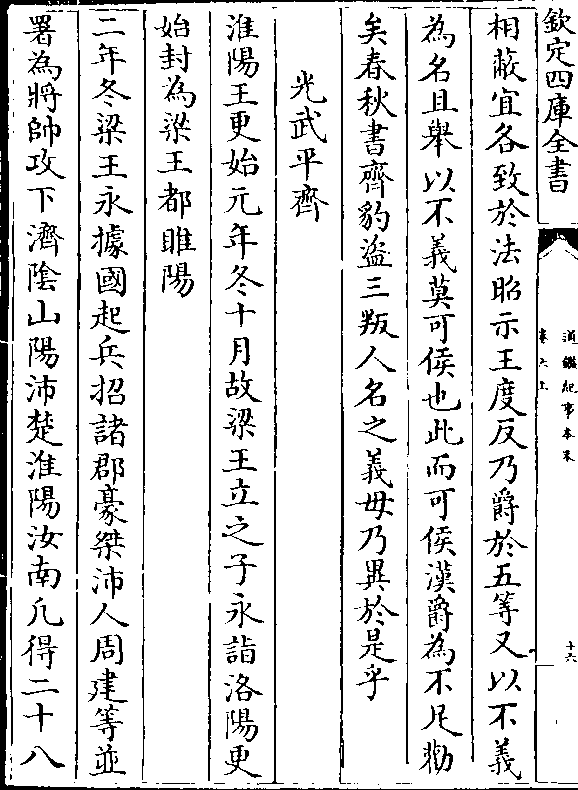 欽定四庫全書
通鑑紀事本末
卷六上
十六
相蔽宜各致於法昭示王度反乃爵於五等又以不義
為名且舉以不義莫可侯也此而可侯漢爵為不足勸
矣春秋書齊豹盜三叛人名之義毋乃異於是乎
光武平齊
淮陽王更始元年冬十月故梁王立之子永詣洛陽更
始封為梁王都睢陽
二年冬梁王永據國起兵招諸郡豪桀沛人周建等並
署為將帥攻下濟陰山陽沛楚淮陽汝南凡得二十八